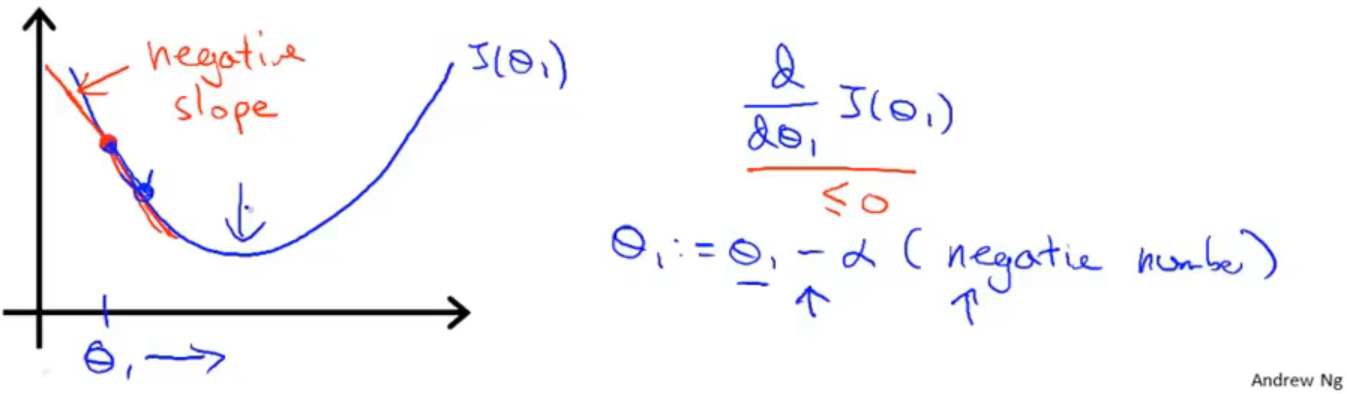 negative
slope
J(θ₁)
d
dθ₁
J(θ₁)
≤ 0
θ₁ := θ₁ - α (negatie number)
θ₁
Andrew Ng